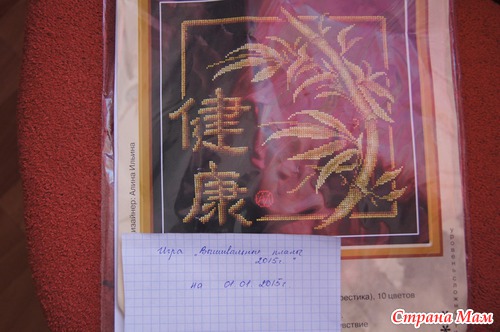 健
康
изайнер: Алина Ильина
Игра „Вышивальные планы
2015г."
на 01.01.2015г.
рестика), 10 цветов
Страна Мам